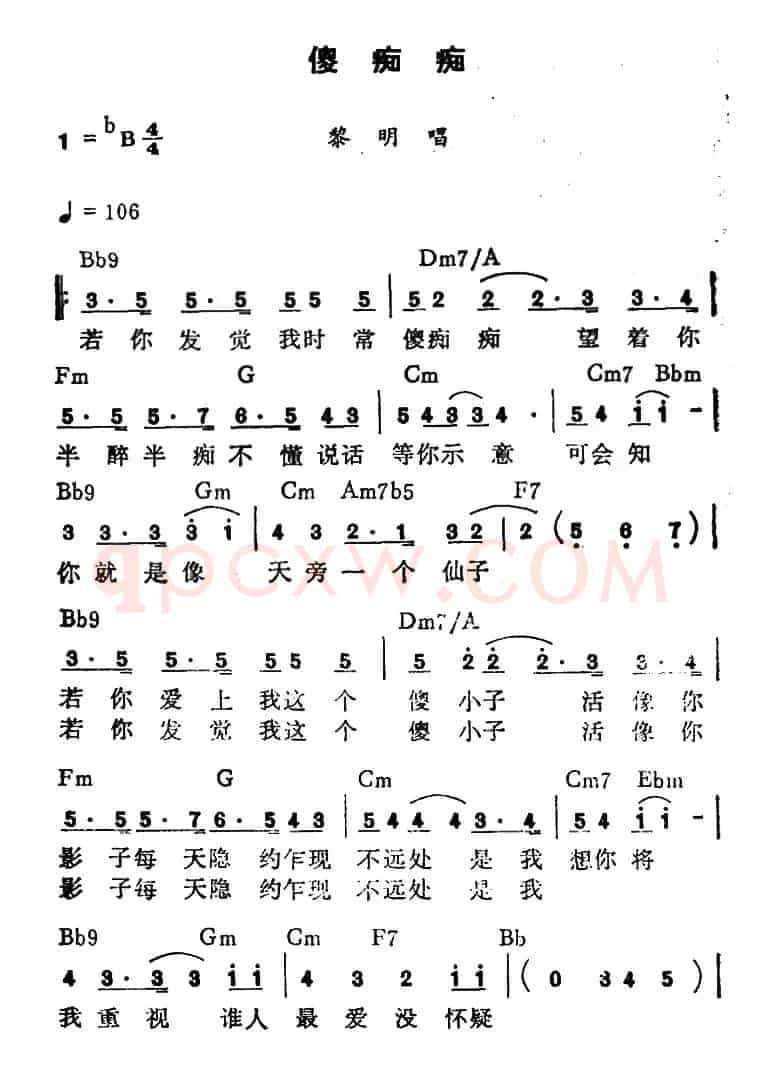 傻 痴 痴
1 = ♭B 4/4
黎 明 唱
♩ = 106
Bb9 Dm7/A
3 · 5 5 · 5 55 5 | 52 2 2 · 3 3 · 4
若 你 发 觉 我时 常 傻痴 痴 望 着 你
Fm G Cm Cm7 Bbm
5 · 5 5 · 7 6 · 5 43 | 5433 34 · | 54 i i -
半 醉 半 痴 不 懂 说话 等你示 意 可会 知
Bb9 Gm Cm Am7b5 F7
3 3 · 3 3 i | 4 3 2 · 1 32 | 2 ( 5 6 7 )
你 就 是 像 天 旁 一 个 仙子
qpcxw.COM
Bb9 Dm7/A
3 · 5 5 · 5 55 5 | 5 22 2 · 3 3 · 4
若 你 爱 上 我这 个 傻 小子 活 像 你
若 你 发 觉 我这 个 傻 小子 活 像 你
Fm G Cm Cm7 Ebm
5 · 5 5 · 7 6 · 5 43 | 544 4 3 · 4 | 54 i i -
影 子每 天隐 约乍现 不远处 是 我 想你 将
影 子每 天隐 约乍现 不远处 是 我
Bb9 Gm Cm F7 Bb
4 3 · 3 3 i i | 4 3 2 i i | ( 0 34 5 )
我 重 视 谁人 最 爱 没 怀疑